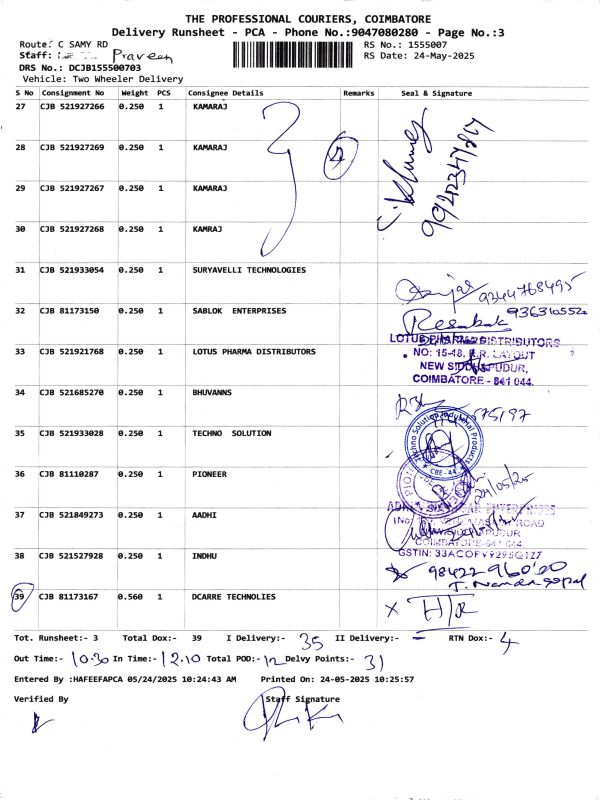 THE PROFESSIONAL COURIERS, COIMBATORE
Delivery Runsheet - PCA - Phone No.:9047080280 - Page No.:3
Route: C SAMY RD
RS No.: 1555007
Staff: Praveen
RS Date: 24-May-2025
DRS No.: DCJB155500703
Vehicle: Two Wheeler Delivery
S No Consignment No Weight PCS Consignee Details Remarks Seal & Signature
27 CJB 521927266 0.250 1 KAMARAJ
28 CJB 521927269 0.250 1 KAMARAJ
29 CJB 521927267 0.250 1 KAMARAJ
30 CJB 521927268 0.250 1 KAMRAJ
31 CJB 521933054 0.250 1 SURYAVELLI TECHNOLOGIES
9344768495
32 CJB 81173150 0.250 1 SABLOK ENTERPRISES
33 CJB 521921768 0.250 1 LOTUS PHARMA DISTRIBUTORS
LOTUS PHARMA DISTRIBUTORS
NO: 15-18, R.R. LAYOUT
NEW SIDDHAPUDUR,
COIMBATORE - 641 044.
34 CJB 521685270 0.250 1 BHUVANNS
35 CJB 521933028 0.250 1 TECHNO SOLUTION
Techno Solution Industrial Products
CBE-44
36 CJB 81110287 0.250 1 PIONEER
24/05/25
37 CJB 521849273 0.250 1 AADHI
38 CJB 521527928 0.250 1 INDHU
J. Nandagopal
39 CJB 81173167 0.560 1 DCARRE TECHNOLIES
x H/R
Tot. Runsheet:- 3 Total Dox:- 39 I Delivery:- 35 II Delivery:- - RTN Dox:- 4
Out Time:- 10.30 In Time:- 12.10 Total POD:- 12 Delvy Points:- 31
Entered By :HAFEEFAPCA 05/24/2025 10:24:43 AM Printed On: 24-05-2025 10:25:57
Verified By Staff Signature